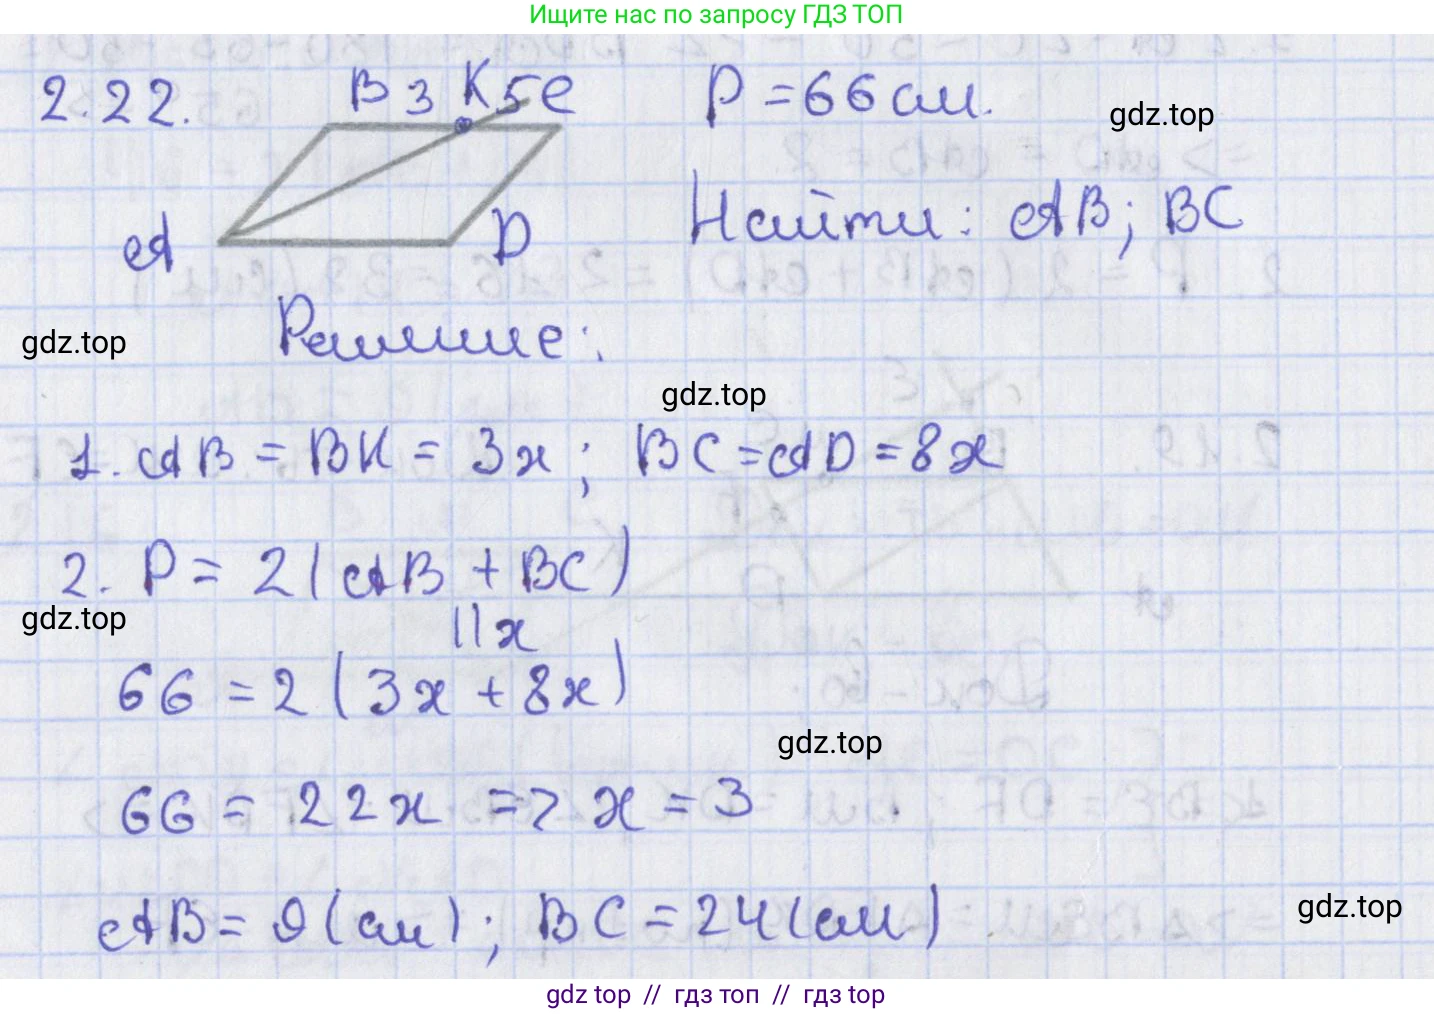 Ищите нас по запросу ГДЗ ТОП
2.22. B 3 K 5 C P = 66 см. gdz.top
A D Найти: AB; BC
gdz.top Решение:
gdz.top
1. AB = BK = 3x; BC = AD = 8x
2. P = 2(AB + BC)
gdz.top 11x
66 = 2(3x + 8x)
gdz.top
66 = 22x => x = 3
AB = 9(см); BC = 24(см) gdz.top
gdz top // гдз топ // гдз top